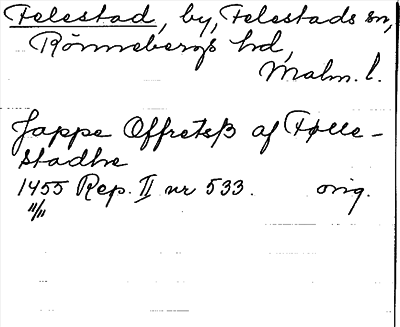 Felestad, by, Felestads sn,
Rönnebergs hd,
Malm. l.
Jappe Offretsß af Følle-
stadhe
1455 Rep. II nr 533. orig.
11/11